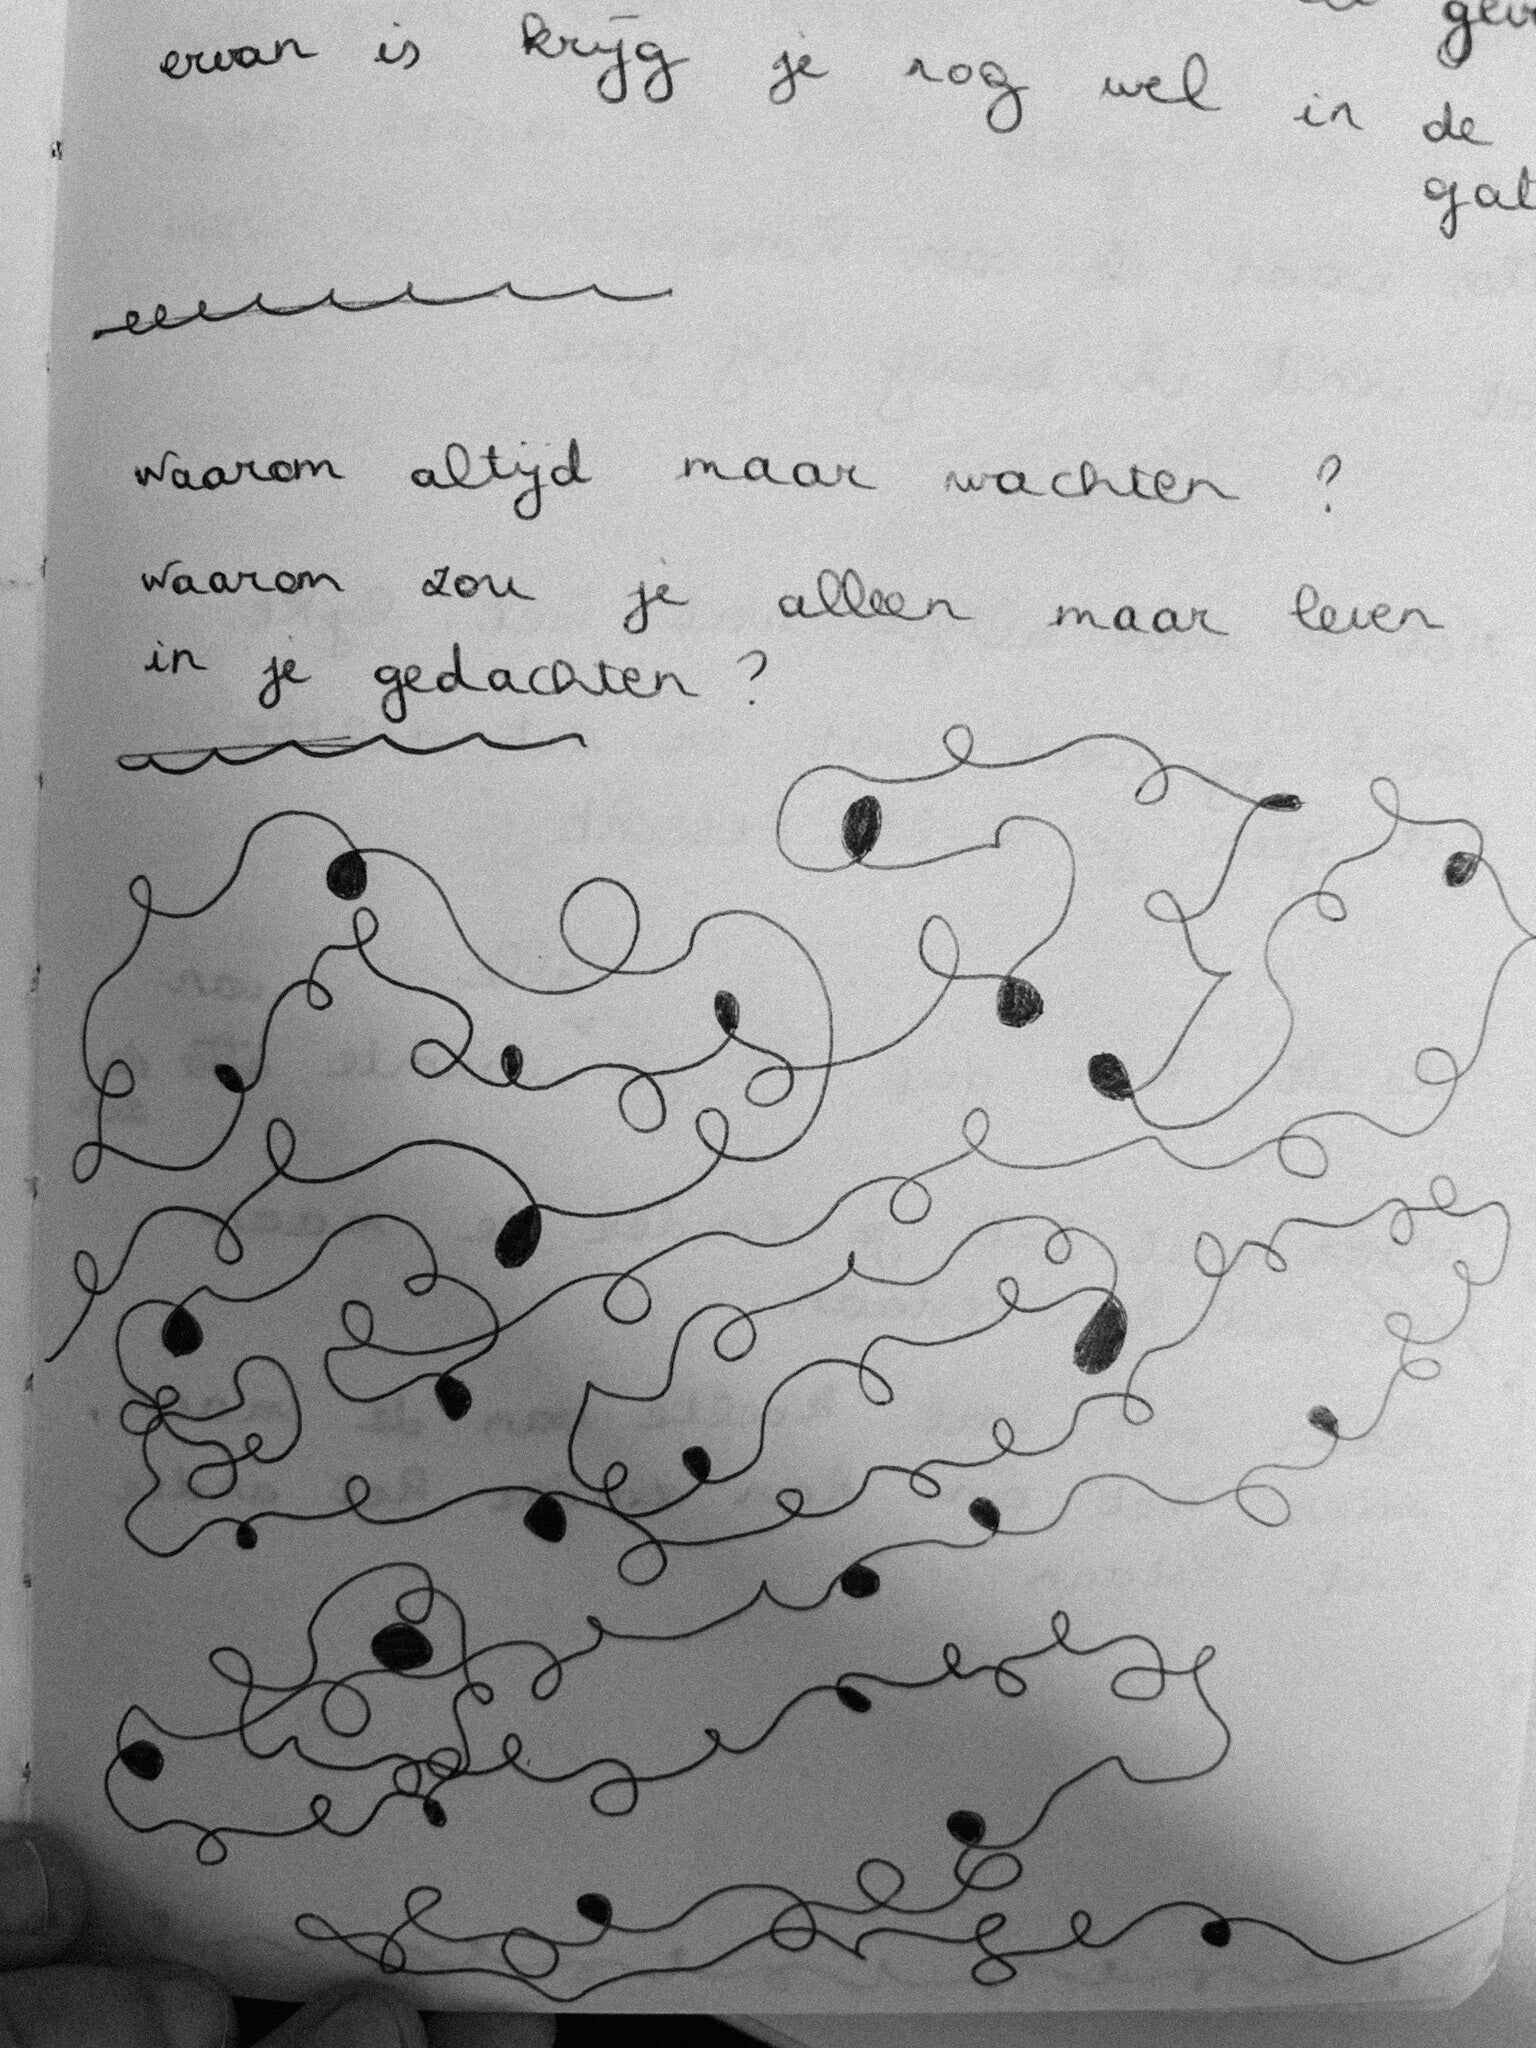 ervan is krijg je nog wel in de
gat
waarom altijd maar wachten ?
waarom zou je alleen maar leven
in je gedachten ?